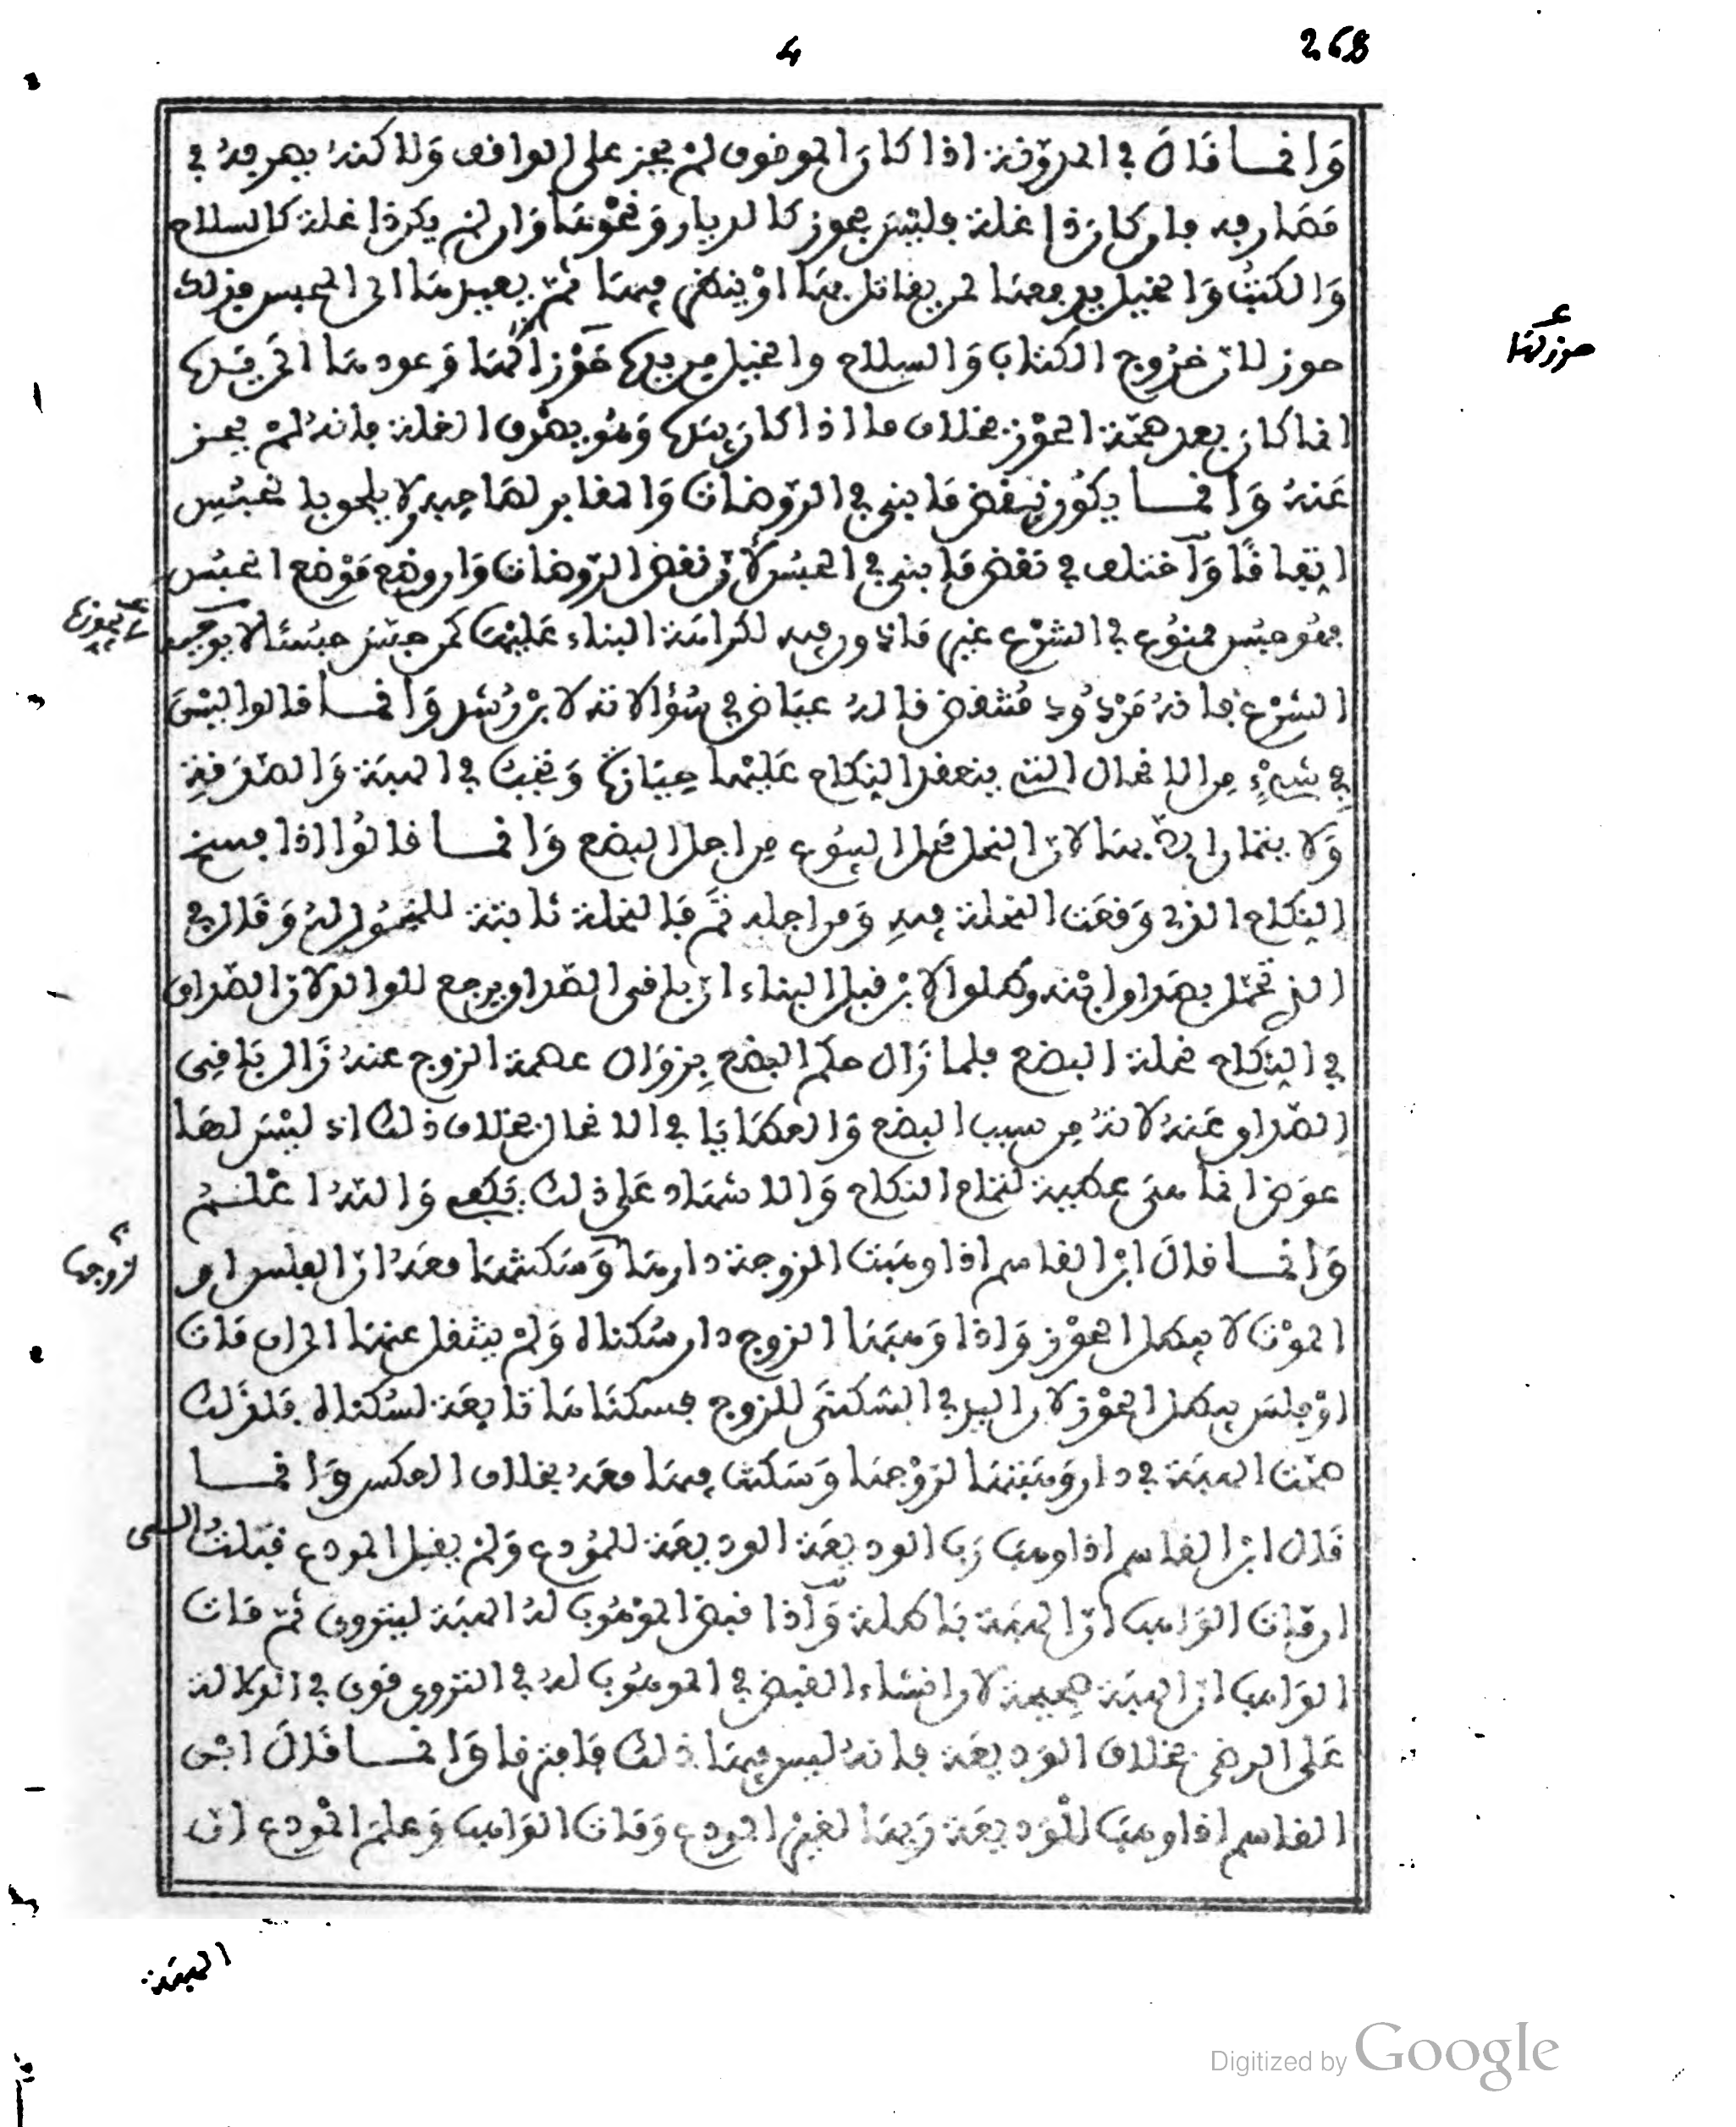 4
268
وَانمـا قَالَ في المدوّنة اذا كان الموقوف لم يحز على الواقف وَلاكنهُ يصرفهُ في
مَصَارفه فان كان ذا غلة فليْسَ بحوز كالديار وَنحْوهَا وَان لم يكن ذا غلة كالسلاح
وَالكتُب وَالخيل يدفعهَا لمن يقاتل بهَا اوْ ينظر فيهَا ثمّ يعيدهَا الى الحبس فذلك
حوز لانّ خرُوج الكتاب وَالسلاح والخيل من يده حَوْز لهَا وَعودهَا الى يَده
حوز لهَا
انما كان بعد صحّة الحوْز بخلاف ما اذا كان بيَده وَهُو يصْرف الغلة فانهُ لمْ يحـز
عَنهُ وَانمـا يكُون نقض مَا بني في الرّوضات وَالمقابر لهَا حبيس لا يلحق بالحبُس
اتفاقًا وَاختلف في نقض مَا بني في الحبُس لانّ نقض الرّوضات وَان وضع مَوْضع الحبُس
فهُو حبْس ممنُوع في الشرْع غير مَاذون فيه لكرَاهَة البناء عَليْهَا كمن حبّس حبْسًا لا يوجبه
الشرْع فانهُ مَرْدُود مُنتقض قالهُ عيَاض في سُؤالاته لابن رُشد وَانمـا قالوا ليْسَ
في شيءٍ من الانحال التي ينعقد النكاح عَليْهَا حيَازة وَتجب في الهبَة وَالصّدَقة
وَلا ينتقل الى بهَا لانّ النحل قبل البيُوع من اجل البضع وَانمـا قالُوا اذا فسخ
النكاح الذي وَقعَت النحلة فيهِ وَمن اجله ثمّ فالنحلة ثابتة للمنحُول لهُ وَقال في
الذي تحمّل بصَداق ابْنته وَطلق الابْن قبل البناء انّ باقي الصّداق يرجع للوالد لانّ الصّداق
في النكاح نحلة البضع فلما زَال حكم البضع بزوَال عصمة الزوج عنهُ زَال بَاقي
الصّداق عَنهُ لانهُ من سبب البضع وَالعطَايَا في الانحال بخلاف ذلك اذ ليْسَ لهَا
عوَض انما هيَ عطية لتمام النكاح وَالاشهاد عَلى ذلك يَكفي وَاللّهُ اعْلـمُ
لزوجها
وَانمـا قالَ ابْن القاسم اذا وهَبت الزوجة دارهَا وَسَكنتهَا معَهُ انّ الفلس او
الموْت لا يبطل الحوْز وَاذا وَهبَهَا الزوج دار سُكناه وَلم ينتقل عنهَا الى ان مَات
اوْ فلسَ يبطل الحوْز لان اليد في السّكنى للزوج فسكناهَا تابعَة لسُكناه فلذلك
صحّت الهبَة في دار وَهبَتهَا لزوْجهَا وَسَكنت فيهَا معَهُ بخلاف العكس وَانمـا
قَال ابْن القاسم اذا وهَب رَب الوديعَة الوديعَة للمُودع وَلم يقبل المودع قبلتُ الى
ان مّات الوَاهب انّ الهبَة بَاطلة وَاذا قبض الموْهُوب لهُ الهبَة ليتروى ثمّ مَات
الوَاهب انّ الهبَة صحيحة لان انشاء القبض في الموهُوب لهُ في التروى قوى في الدلالة
عَلى الرضى بخلاف الوَديعَة فانهُ ليس فيهَا ذلك فافترقا وَانمـا قَالَ ابْن
القاسم اذا وهبَ الوَديعَة رَبهَا لغيْر المودع وَمَات الوَاهب وَعلمَ الموْدع انّ
الهبَة
Digitized by Google